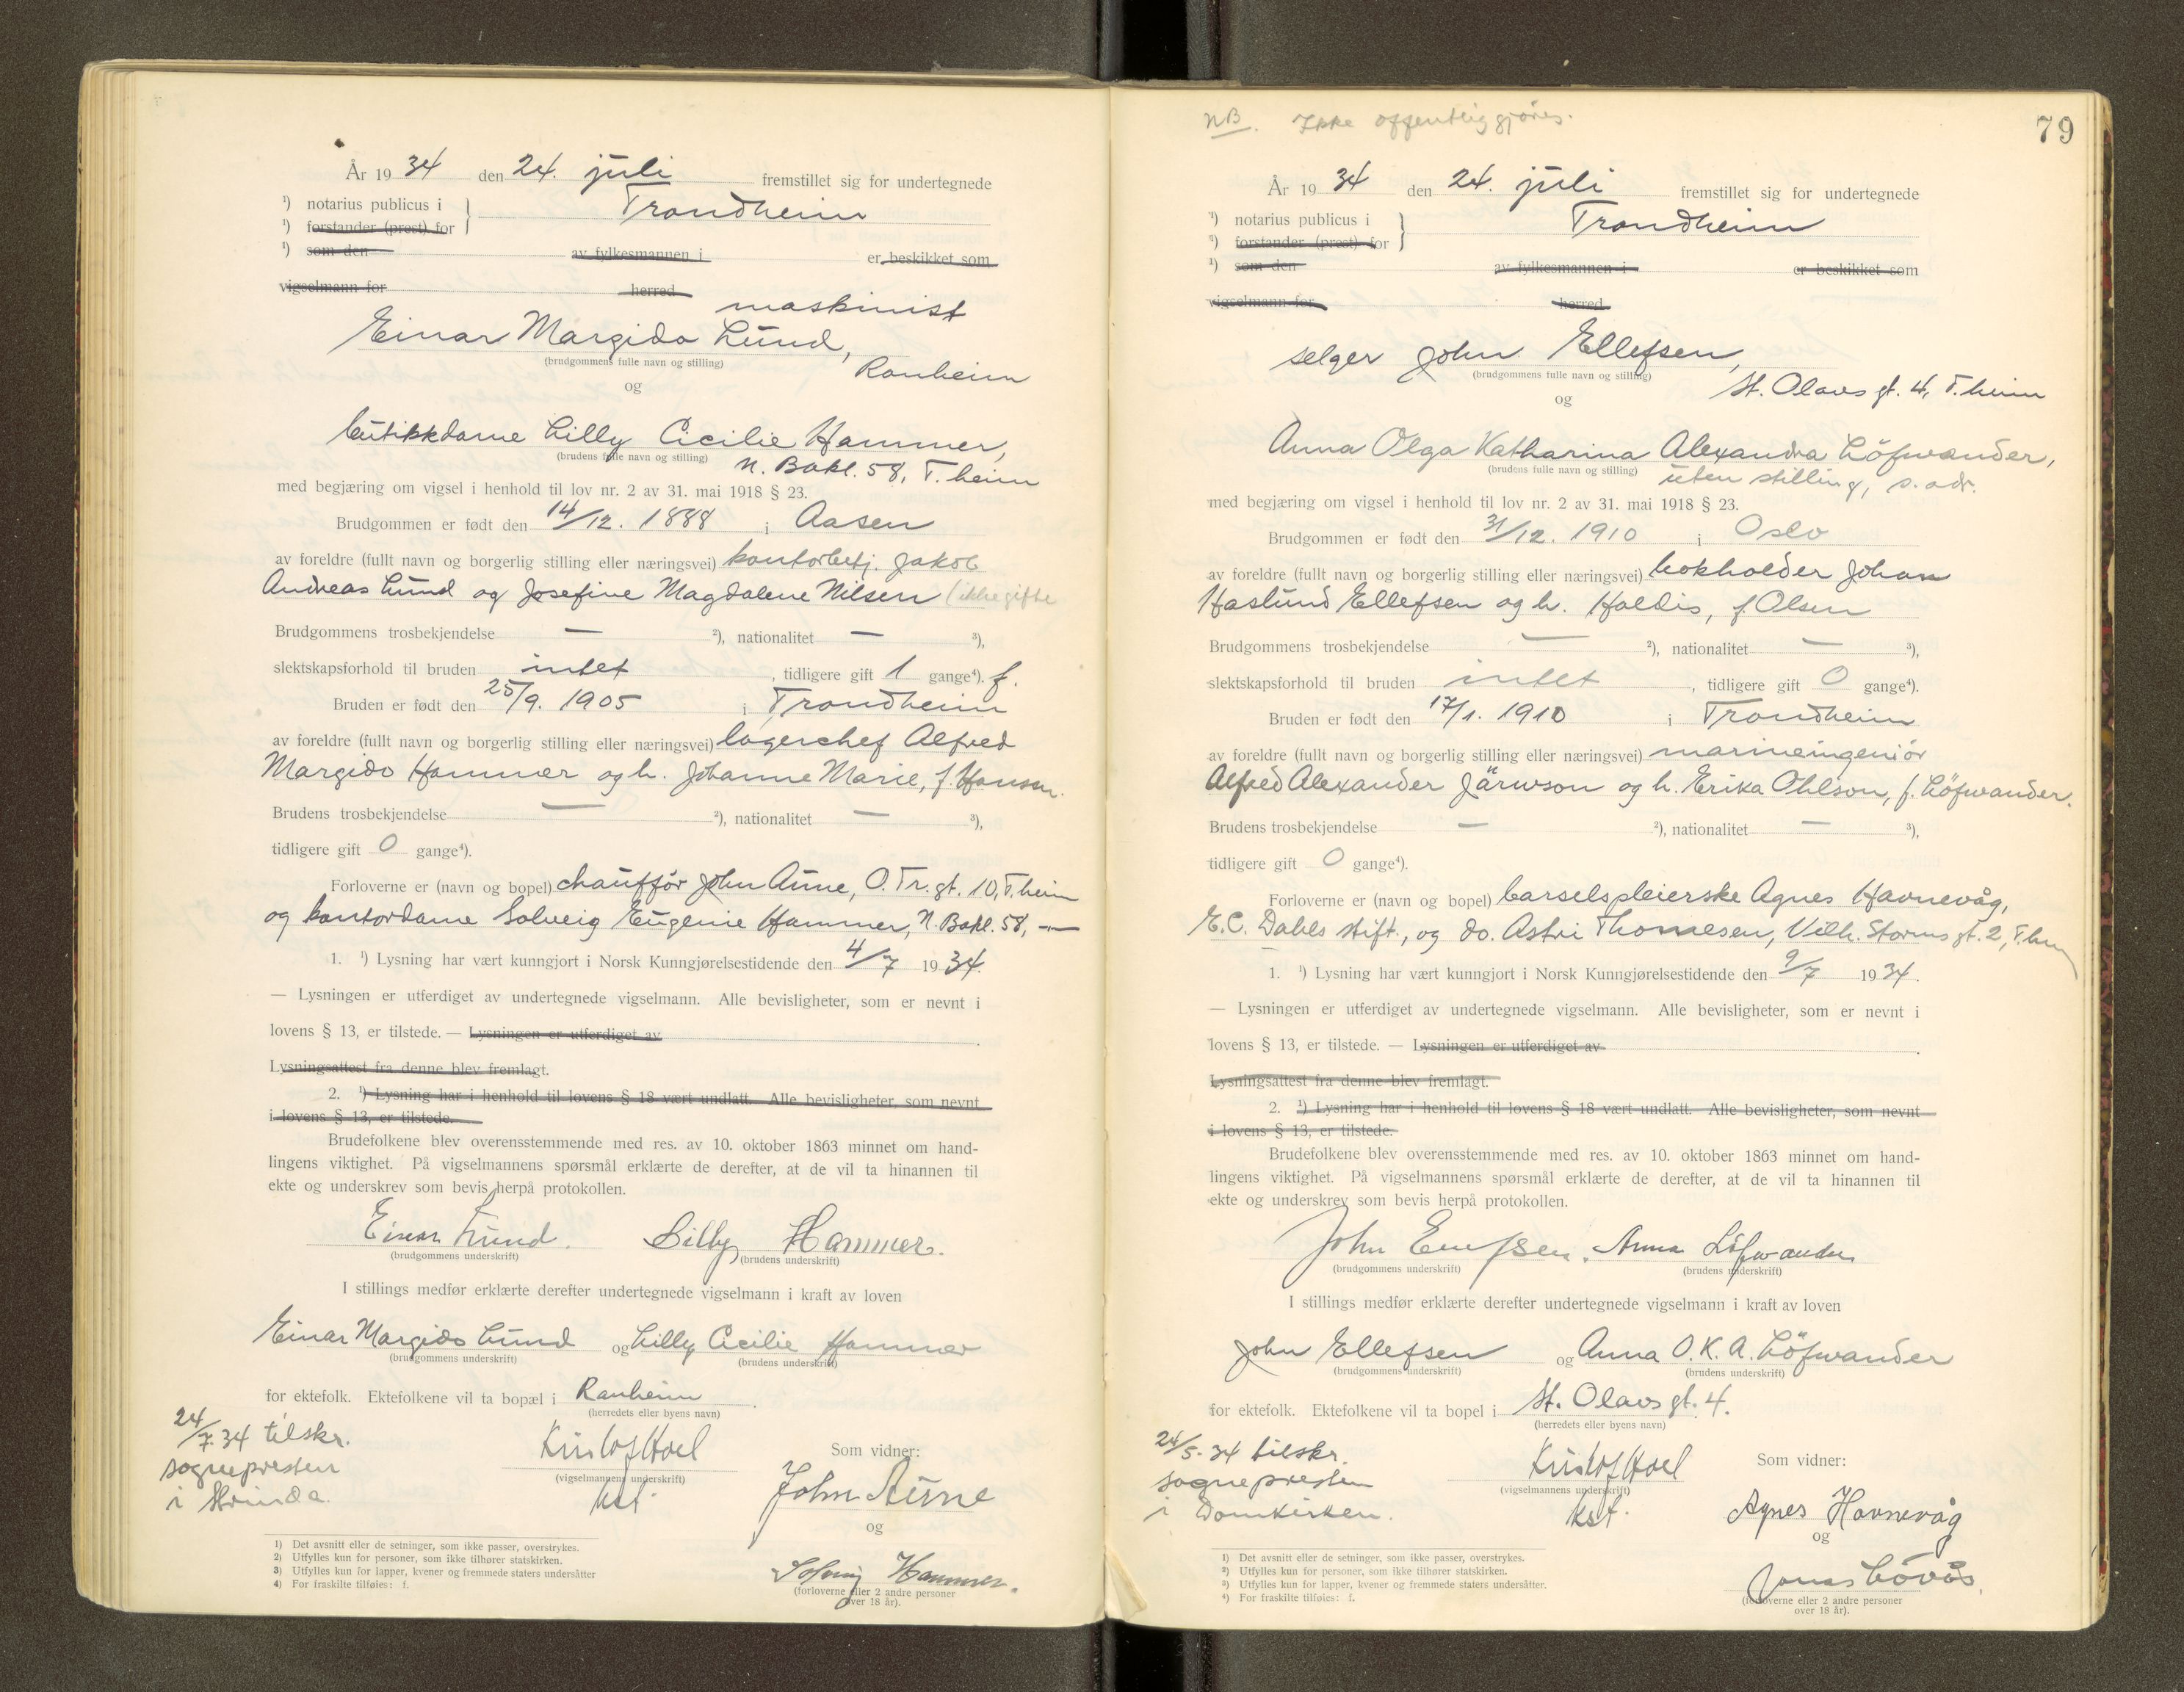 År 1934 den 24. juli fremstillet sig for undertegnede
¹) notarius publicus i
Trondheim
¹) forstander (prest) for
¹) som den av fylkesmannen i er beskikket som
vigselmann for herred
maskinist
Einar Margido Lund,
(brudgommens fulle navn og stilling)
Ranheim
og
butikkdame Lilly Cicilie Hammer,
(brudens fulle navn og stilling)
N. Bakl. 58, T.heim
med begjæring om vigsel i henhold til lov nr. 2 av 31. mai 1918 § 23.
Brudgommen er født den 14/12. 1888 i Aasen
av foreldre (fullt navn og borgerlig stilling eller næringsvei) kontorbetj. Jakob
Andreas Lund og Josefine Magdalene Nilsen (ikke gifte
Brudgommens trosbekjendelse — ²), nationalitet — ³),
slektskapsforhold til bruden intet, tidligere gift 1 gange⁴). f.
Bruden er født den 25/9. 1905 i Trondheim
av foreldre (fullt navn og borgerlig stilling eller næringsvei) lagerchef Alfred
Margido Hammer og h. Johanne Marie, f. Hansen.
Brudens trosbekjendelse — ²), nationalitet — ³),
tidligere gift 0 gange⁴).
Forloverne er (navn og bopel) chauffør John Aune, O. Tr. gt. 10, T.heim
og kontordame Solveig Eugenie Hammer, N. Bakl. 58, —
1. ¹) Lysning har vært kunngjort i Norsk Kunngjørelsestidende den 4/7 1934.
— Lysningen er utferdiget av undertegnede vigselmann. Alle bevisligheter, som er nevnt i
lovens § 13, er tilstede. — Lysningen er utferdiget av
Lysningsattest fra denne blev fremlagt.
2. ¹) Lysning har i henhold til lovens § 18 vært undlatt. Alle bevisligheter, som nevnt
i lovens § 13, er tilstede.
Brudefolkene blev overensstemmende med res. av 10. oktober 1863 minnet om hand-
lingens viktighet. På vigselmannens spørsmål erklærte de derefter, at de vil ta hinannen til
ekte og underskrev som bevis herpå protokollen.
Einar Lund. Lilly Hammer.
(brudgommens underskrift) (brudens underskrift)
I stillings medfør erklærte derefter undertegnede vigselmann i kraft av loven
Einar Margido Lund og Lilly Cicilie Hammer
(brudgommens underskrift) (brudens underskrift)
for ektefolk. Ektefolkene vil ta bopæl i Ranheim.
(herredets eller byens navn)
24/7.34 tilskr.
sognepresten
i Strinda.
Krist. Hoel
(vigselmannens underskrift)
kst.
Som vidner:
John Aune
og
Solveig Hammer.
(forloverne eller 2 andre personer
over 18 år).
1) Det avsnitt eller de setninger, som ikke passer, overstrykes.
2) Utfylles kun for personer, som ikke tilhører statskirken.
3) Utfylles kun for lapper, kvener og fremmede staters undersåtter
4) For fraskilte tilføies: f.
NB. Ikke offentliggjøres.
79
År 1934 den 24. juli fremstillet sig for undertegnede
¹) notarius publicus i
Trondheim
²) forstander (prest) for
¹) som den av fylkesmannen i er beskikket som
vigselmann for herred
selger John Ellefsen,
(brudgommens fulle navn og stilling)
St. Olavs gt. 4, T.heim
og
Anna Olga Katharina Alexandra Löfwander,
(brudens fulle navn og stilling)
uten stilling, s. adr.
med begjæring om vigsel i henhold til lov nr. 2 av 31. mai 1918 § 23.
Brudgommen er født den 31/12. 1910 i Oslo
av foreldre (fullt navn og borgerlig stilling eller næringsvei) bokholder Johan
Haslund Ellefsen og h. Haldis, f. Olsen
Brudgommens trosbekjendelse — ²), nationalitet — ³),
slektskapsforhold til bruden intet, tidligere gift 0 gange⁴).
Bruden er født den 17/1. 1910 i Trondheim
av foreldre (fullt navn og borgerlig stilling eller næringsvei) marineingeniör
Alfred Alexander Järwson og h. Erika Ohlson, f. Löfwander.
Brudens trosbekjendelse — ²), nationalitet — ³),
tidligere gift 0 gange⁴).
Forloverne er (navn og bopel) barselspleierske Agnes Havnevåg,
E.C. Dahls stift., og do. Astri Thomesen, Vilh. Storms gt. 2, T.heim
1. ¹) Lysning har vært kunngjort i Norsk Kunngjørelsestidende den 9/7 1934.
— Lysningen er utferdiget av undertegnede vigselmann. Alle bevisligheter, som er nevnt i
lovens § 13, er tilstede. — Lysningen er utferdiget av
Lysningsattest fra denne blev fremlagt.
2. ¹) Lysning har i henhold til lovens § 18 vært undlatt. Alle bevisligheter, som nevnt
i lovens § 13, er tilstede.
Brudefolkene blev overensstemmende med res. av 10. oktober 1863 minnet om hand-
lingens viktighet. På vigselmannens spørsmål erklærte de derefter, at de vil ta hinannen til
ekte og underskrev som bevis herpå protokollen.
John Ellefsen. Anna Löfwander
(brudgommens underskrift) (brudens underskrift)
I stillings medfør erklærte derefter undertegnede vigselmann i kraft av loven
John Ellefsen og Anna O. K. A. Löfwander
(brudgommens underskrift) (brudens underskrift)
for ektefolk. Ektefolkene vil ta bopel i St. Olavs gt. 4.
(herredets eller byens navn)
24/5.34 tilskr.
sognepresten
i Domkirken.
Krist. Hoel
(vigselmannens underskrift)
kst.
Som vidner:
Agnes Havnevåg
og
Jonas Lövås.
(forloverne eller 2 andre personer
over 18 år).
¹) Det avsnitt eller de setninger, som ikke passer, overstrykes.
²) Utfylles kun for personer, som ikke tilhører statskirken.
³) Utfylles kun for lapper, kvener og fremmede staters undersåtter.
⁴) For fraskilte tilføies: f.